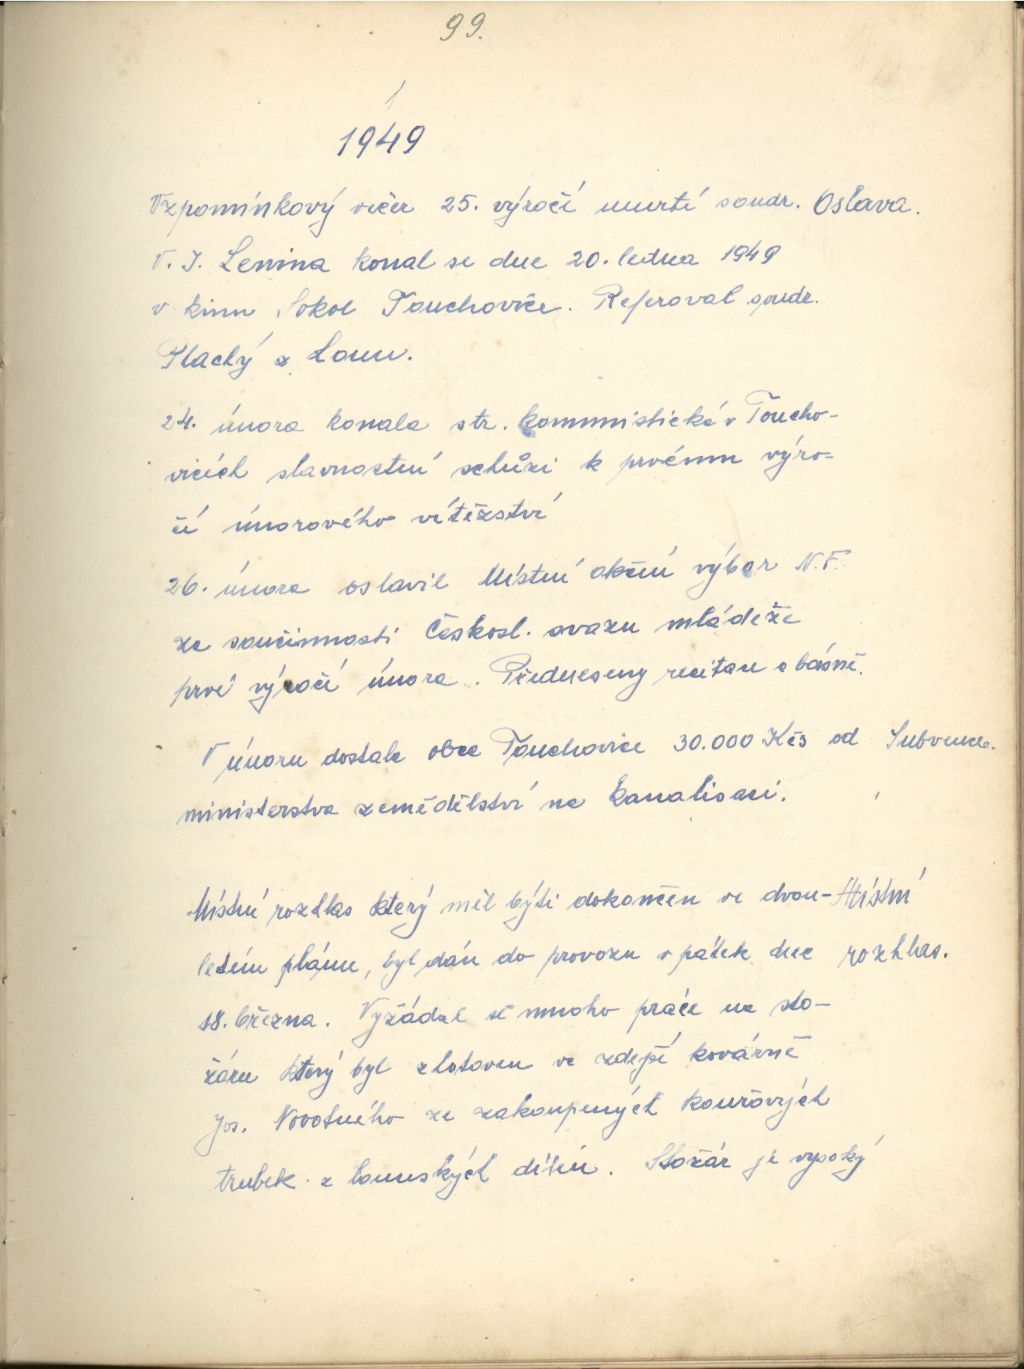 99.
1949
Vzpomínkový večer 25. výročí úmrtí soudr. Oslava.
V. I. Lenina konal se dne 20. ledna 1949
v kinu Sokol Touchovice. Referoval soudr.
Plachý z Loun.
24. února konala str. kommistická v Toucho-
vicích slavnostní schůzi k prvému výro-
čí únorového vítězství
26. února oslavil Místní akční výbor N.F.
ze součinnosti Českosl. svazu mládeže
prvé výročí února. Předneseny recitace a básně.
V únoru dostala obec Touchovice 30.000 Kčs od Subvence.
ministerstva zemědělství na kanalisaci.
Místní rozhlas který měl býti dokončen ve dvou- Místní
letém plánu, byl dán do provozu v pátek dne rozhlas.
18. března. Vyžádal si mnoho práce na sto-
žáru který byl zhotoven ve zdejší kovárně
Jos. Novotného ze zakoupených kouřových
trubek z lounských dílen. Stožár je vysoký